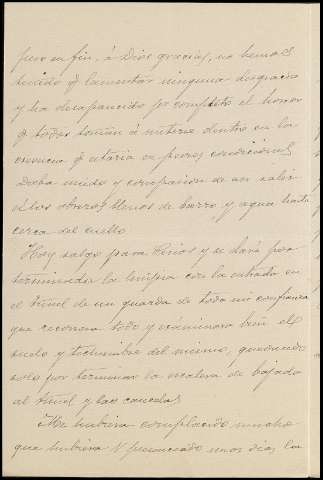 pero en fin, á Dios gracias, no hemos
tenido q lamentar ninguna desgracia
y ha desaparecido por completo el horror
q todos tenian á meterse dentro en la
creencia q estaria en peores condiciones
Daba miedo y compasion de ver salir
a los obreros llenos de barro y agua hasta
cerca del cuello.
Hoy salgo para Rios y se dará por
terminada la limpia con la entrada en
el tunel de un guarda de toda mi confianza
que reconozca todo y examinara bien el
suelo y techumbre del mismo, quedando
solo por terminar la escalera de bajada
al tunel y las
Me hubiera complacido mucho
que hubiera V presenciado unos dias la